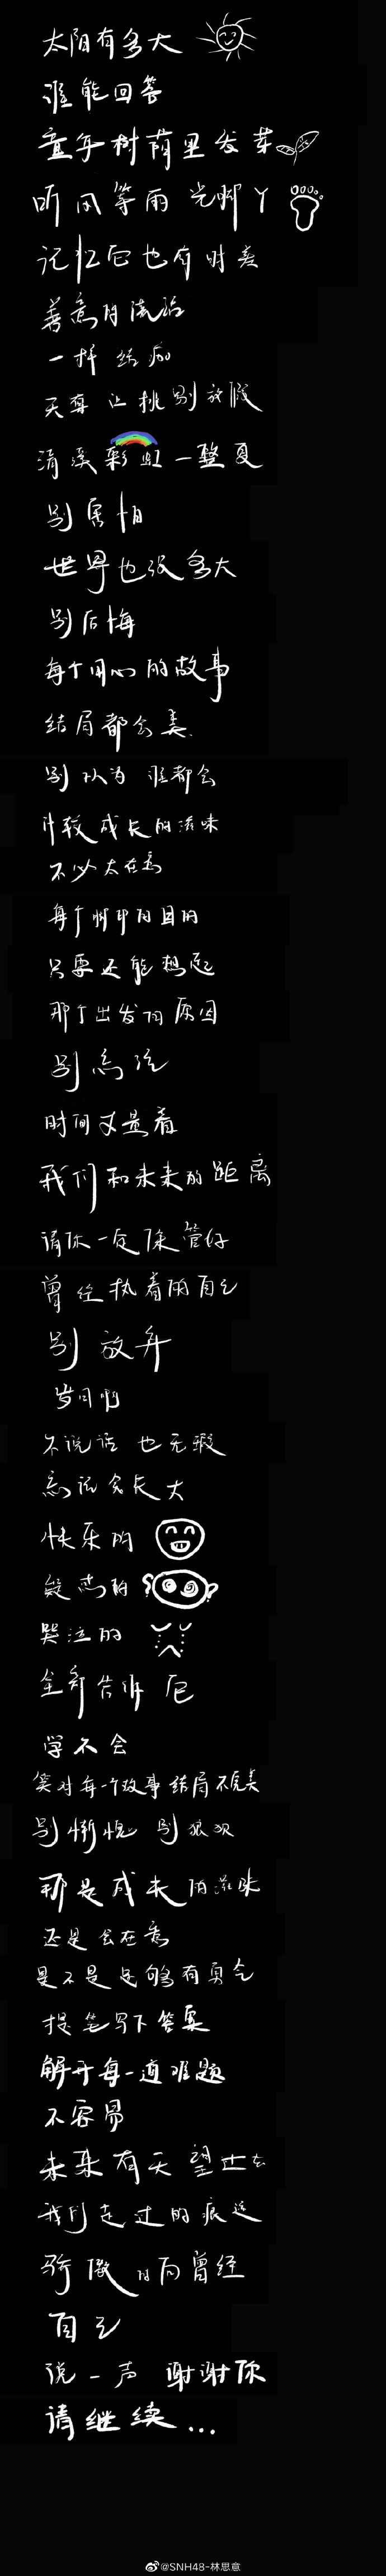 太阳有多大
谁能回答
童年树荫里发芽
听风等雨 光脚丫
记忆它也有时差
善意的谎话
一样结痂
天真让挑剔放假
清澈彩虹一整夏
别害怕
世界也没多大
别后悔
每个用心的故事
结局都会美
别以为 谁都会
计较成长的滋味
不必太在意
每个 的目的
只要还能想起
那个出发的原因
别忘记
时间丈量着
我们和未来的距离
请你一定保管好
曾经执着的自己
别放弃
岁月啊
不说话 也无瑕
忘记会长大
快乐的
疑惑的
哭泣的
全部告诉它
学不会
笑对每一个故事结局不完美
别惭愧 别狼狈
那是成长的滋味
还是会在意
是不是足够有勇气
提笔写下答案
解开每一道难题
不容易
未来有天望过去
我们走过的痕迹
骄傲的向曾经
自己
说一声 谢谢你
请继续...
@SNH48-林思意